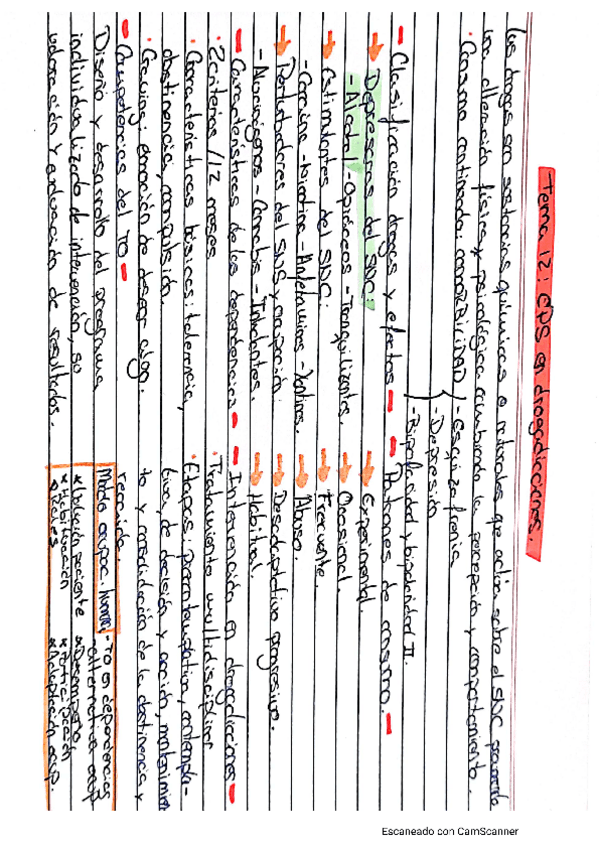 Tema 12: EPS en drogadicciones.
Las drogas son sustancias químicas o naturales que actúan sobre el SNC generando
una alteración física y psicológica cambiando la percepción y comportamiento.
· Consumo continuado: comorbilidad - Esquizofrenia
- Depresión
- Bipolaridad y bipolaridad II.
- Clasificación drogas y efectos -
→ Depresoras del SNC:
- Alcohol - Opiáceos - Tranquilizantes.
→ Estimulantes del SNC:
- Cocaína - Nicotina - Anfetaminas - Xantinas.
→ Perturbadores del SNS y
- Alucinógenos - Cannabis - Inhalantes.
- Características de las dependencias -
· 2 criterios / 12 meses
· Características básicas: tolerancia,
abstinencia, compulsión.
· Craving: emoción de desear algo.
- Competencias del TO -
Diseño y desarrollo del programa
individualizado de intervención, su
valoración y evaluación de resultados.
- Patrones de consumo -
→ Experimental.
→ Ocasional.
→ Frecuente.
→ Abuso.
→ Descriptivo progresivo.
→ Habitual.
- Intervención en drogadicciones -
· Tratamiento multidisciplinar
· Etapas: precontemplativa, contempla-
tiva, de decisión y acción, mantenimien
to y consolidación de la abstinencia y
recaída.
Modelo ocupac. humano - TO en dependencias
- alternativa ocup
* Volición paciente * Desempeño,
* Habituación * Participación
* Roles * Adaptación ocup.
Escaneado con CamScanner